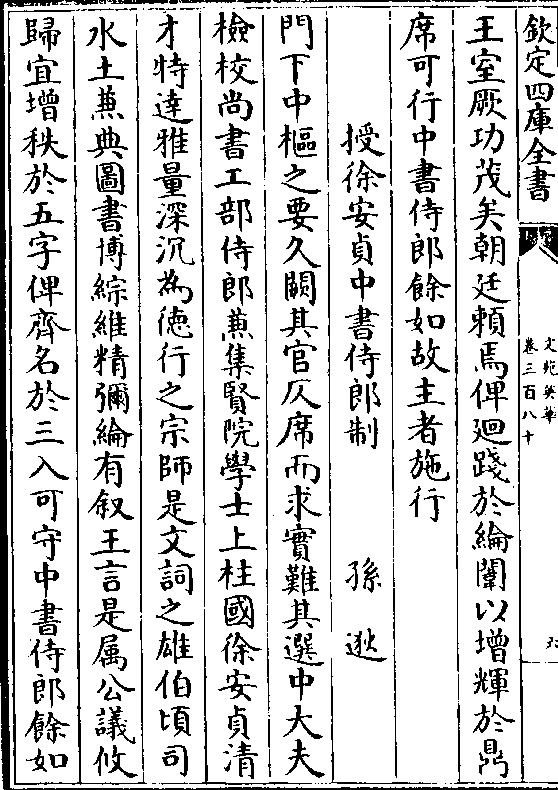 欽定四庫全書
文苑英華
卷三百八十
六
王室厥功茂矣朝廷賴焉俾迴踐於綸闈以增輝於鼎
席可行中書侍郎餘如故主者施行
授徐安貞中書侍郎制 孫逖
門下中樞之要久闕其官仄席而求實難其選中大夫
檢校尚書工部侍郎兼集賢院學士上柱國徐安貞清
才特達雅量深沉為德行之宗師是文詞之雄伯頃司
水土兼典圖書博綜維精彌綸有叙王言是属公議攸
歸宜增秩於五字俾齊名於三入可守中書侍郎餘如